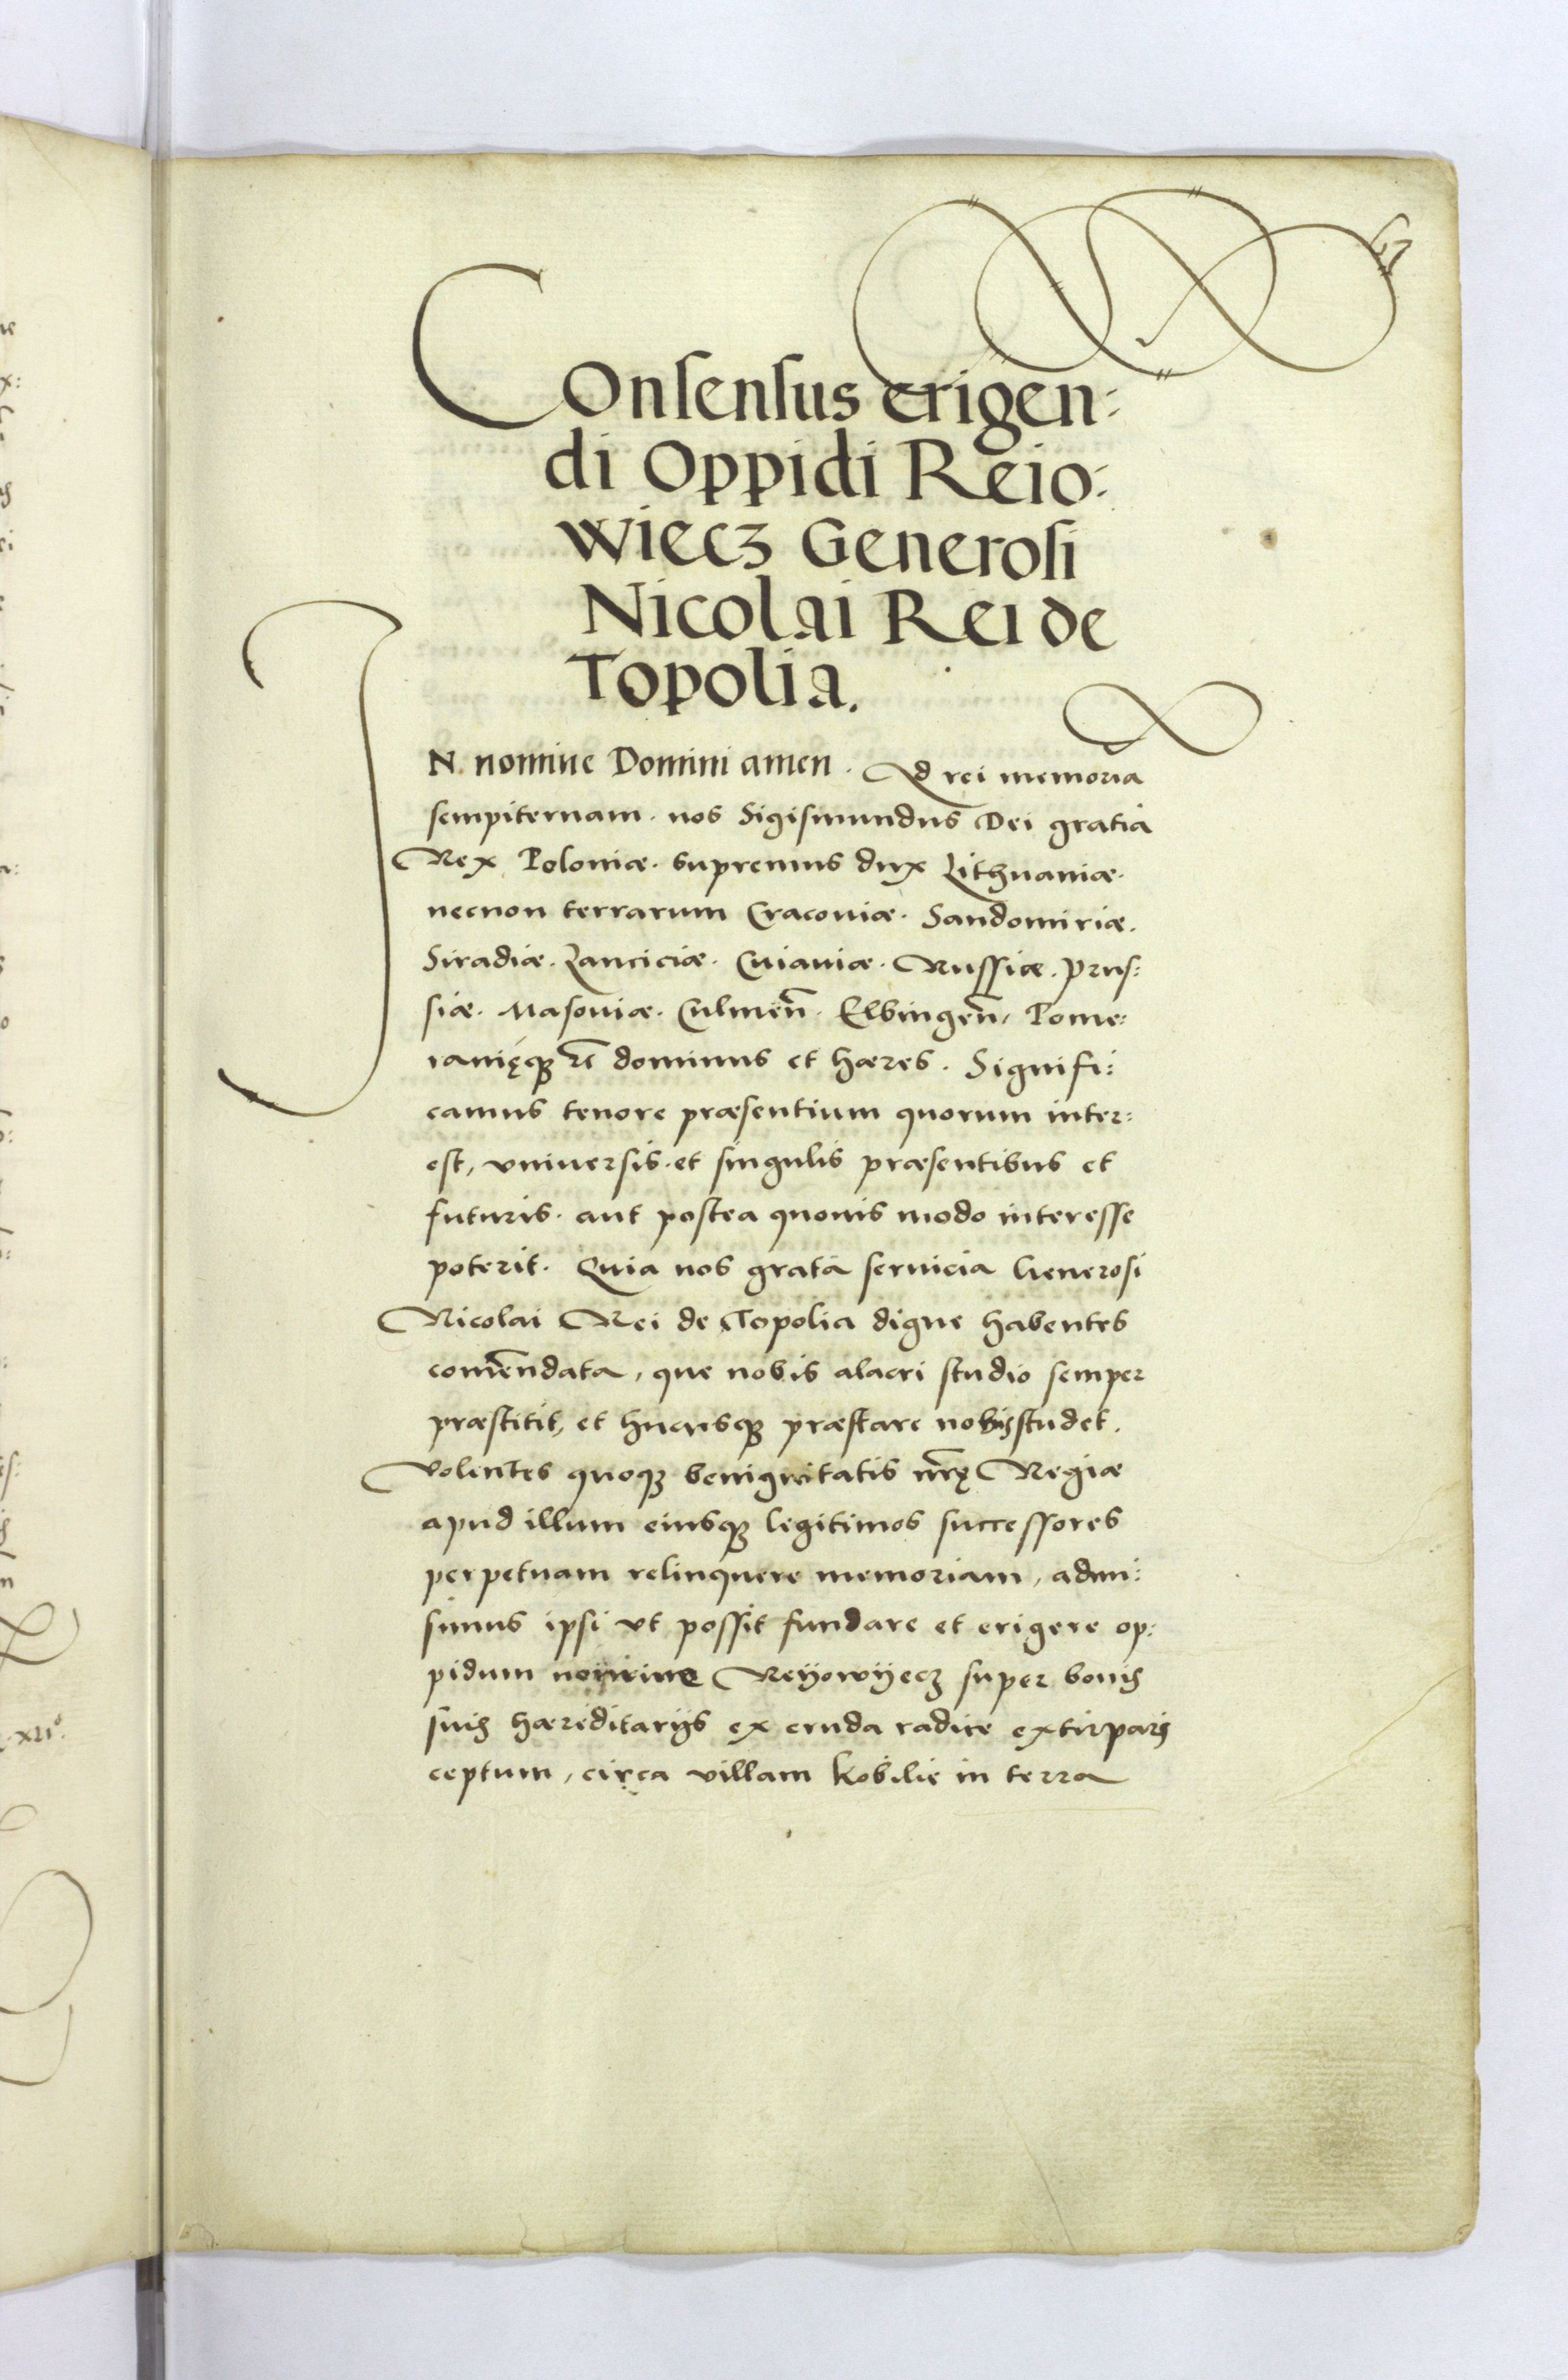 Consensus erigen:
di Oppidi Reio:
wiecz Generosi
Nicolai Rei de
Topolia.
IN nomine Domini amen. Ad rei memoria
sempiternam. nos Sigismundus Dei gratia
Rex Poloniæ. supremus dux Lithuaniæ.
necnon terrarum Cracoviæ. Sandomiriæ.
Siradiæ. Lanciciæ. Cuiaviæ. Russiæ. Prus:
siæ. Masoviæ. Culmen̄. Elbingen̄, Pome:
ranięqꝫ zc̄ dominus et hæres. Signifi:
camus tenore præsentium quorum inter:
est, vniversis. et singulis præsentibus et
futuris. aut postea quouis modo interesse
poterit. Quia nos grata seruicia Generosi
Nicolai Rei de Topolia digne habentes
com̄endata, que nobis alacri studio semper
præstitit, et hucusqꝫ præstare nobis studet.
Volentes quoqꝫ benignitatis nr̄ę Regiæ
apud illum eiusqꝫ legitimos successores
perpetuam relinquere memoriam, admi:
simus ipsi vt possit fundare et erigere op:
pidum nomine Reÿowÿecz super bonis
suis hæreditarÿs ex cruda radice extirpari
ceptum, circa villam Kobilie in terra